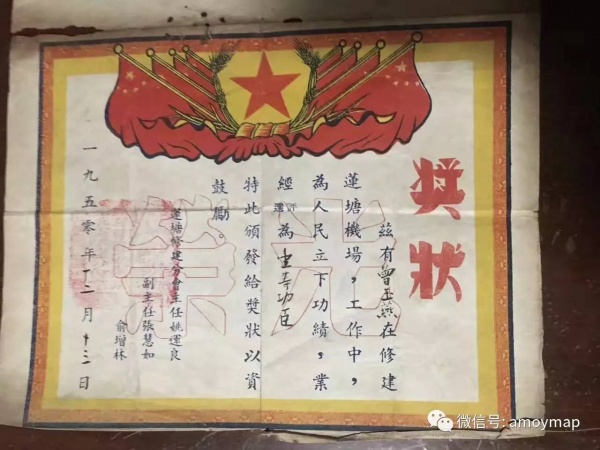 獎狀
光榮
茲有曾玉燕在修建
蓮塘機場，工作中，
為人民立下功績，業
經評選為壹等功臣
特此頒發給獎狀以資
鼓勵
蓮塘修建分會主任姚運良
副主任張慧如
俞增林
一九五零年十二月十三日
微信号: amoymap